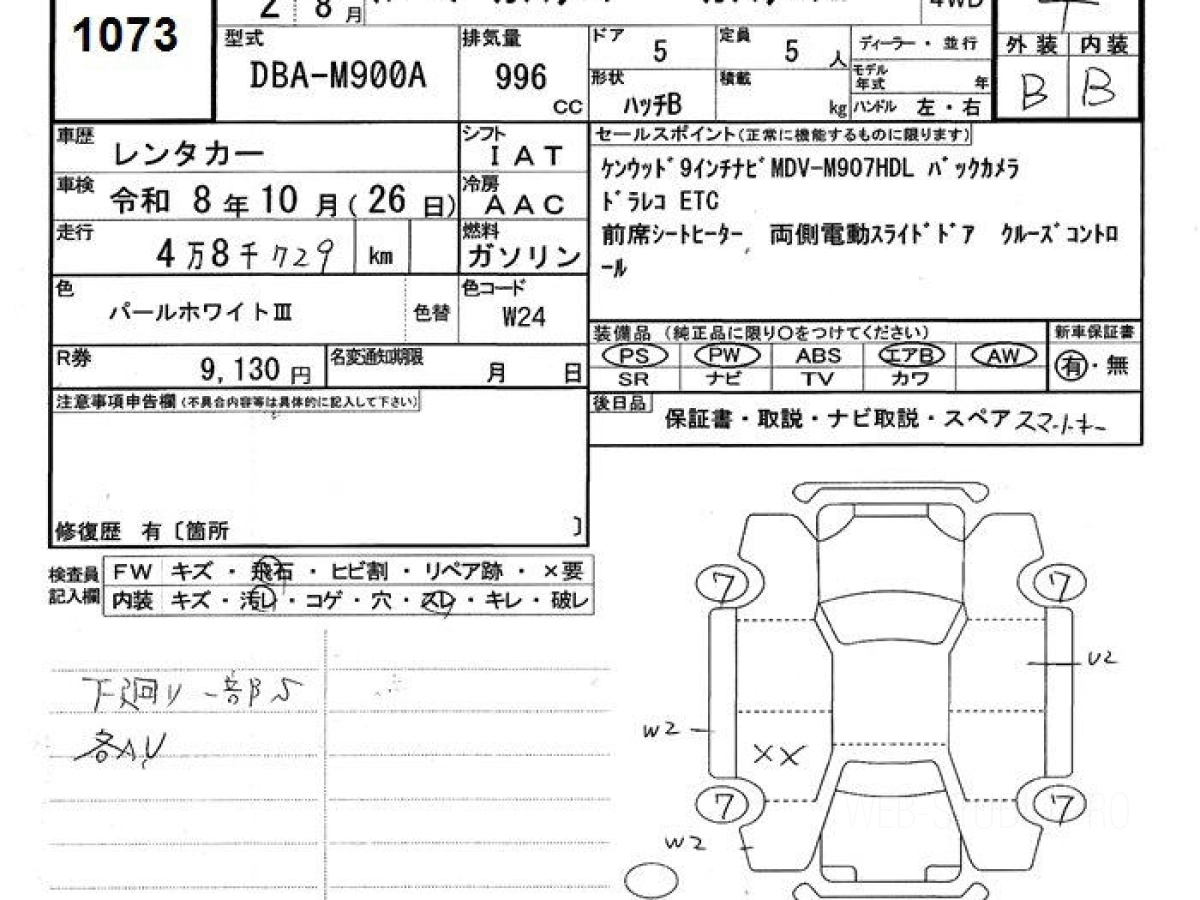 1073
2 8月 4WD
型式 DBA-M900A
排気量 996 CC
ドア 5
定員 5 人
ディーラー・並行
形状 ハッチB
積載 kg
モデル年式 年
ハンドル 左・右
外装 内装
B B
車歴 レンタカー
シフト IAT
車検 令和 8年10月(26日)
冷房 AAC
走行 4万8千729 km
燃料 ガソリン
色 パールホワイトⅢ 色替
色コード W24
R券 9,130円
名変通知期限 月 日
セールスポイント(正常に機能するものに限ります)
ケンウッド9インチナビMDV-M907HDL バックカメラ
ドラレコ ETC
前席シートヒーター 両側電動スライドドア クルーズコントロ
ール
装備品 (純正品に限り○をつけてください) 新車保証書
PS PW ABS エアB AW 有・無
SR ナビ TV カワ
後日品 保証書・取説・ナビ取説・スペアスマートキー
注意事項申告欄(不具合内容等は具体的に記入して下さい)
修復歴 有〔箇所 〕
検査員記入欄
FW キズ・飛石・ヒビ割・リペア跡・×要
内装 キズ・汚レ・コゲ・穴・スレ・キレ・破レ
下廻り一部S
各AU
7 7
U2
W2
XX
7 7
W2
WEB-STUDIO.PRO